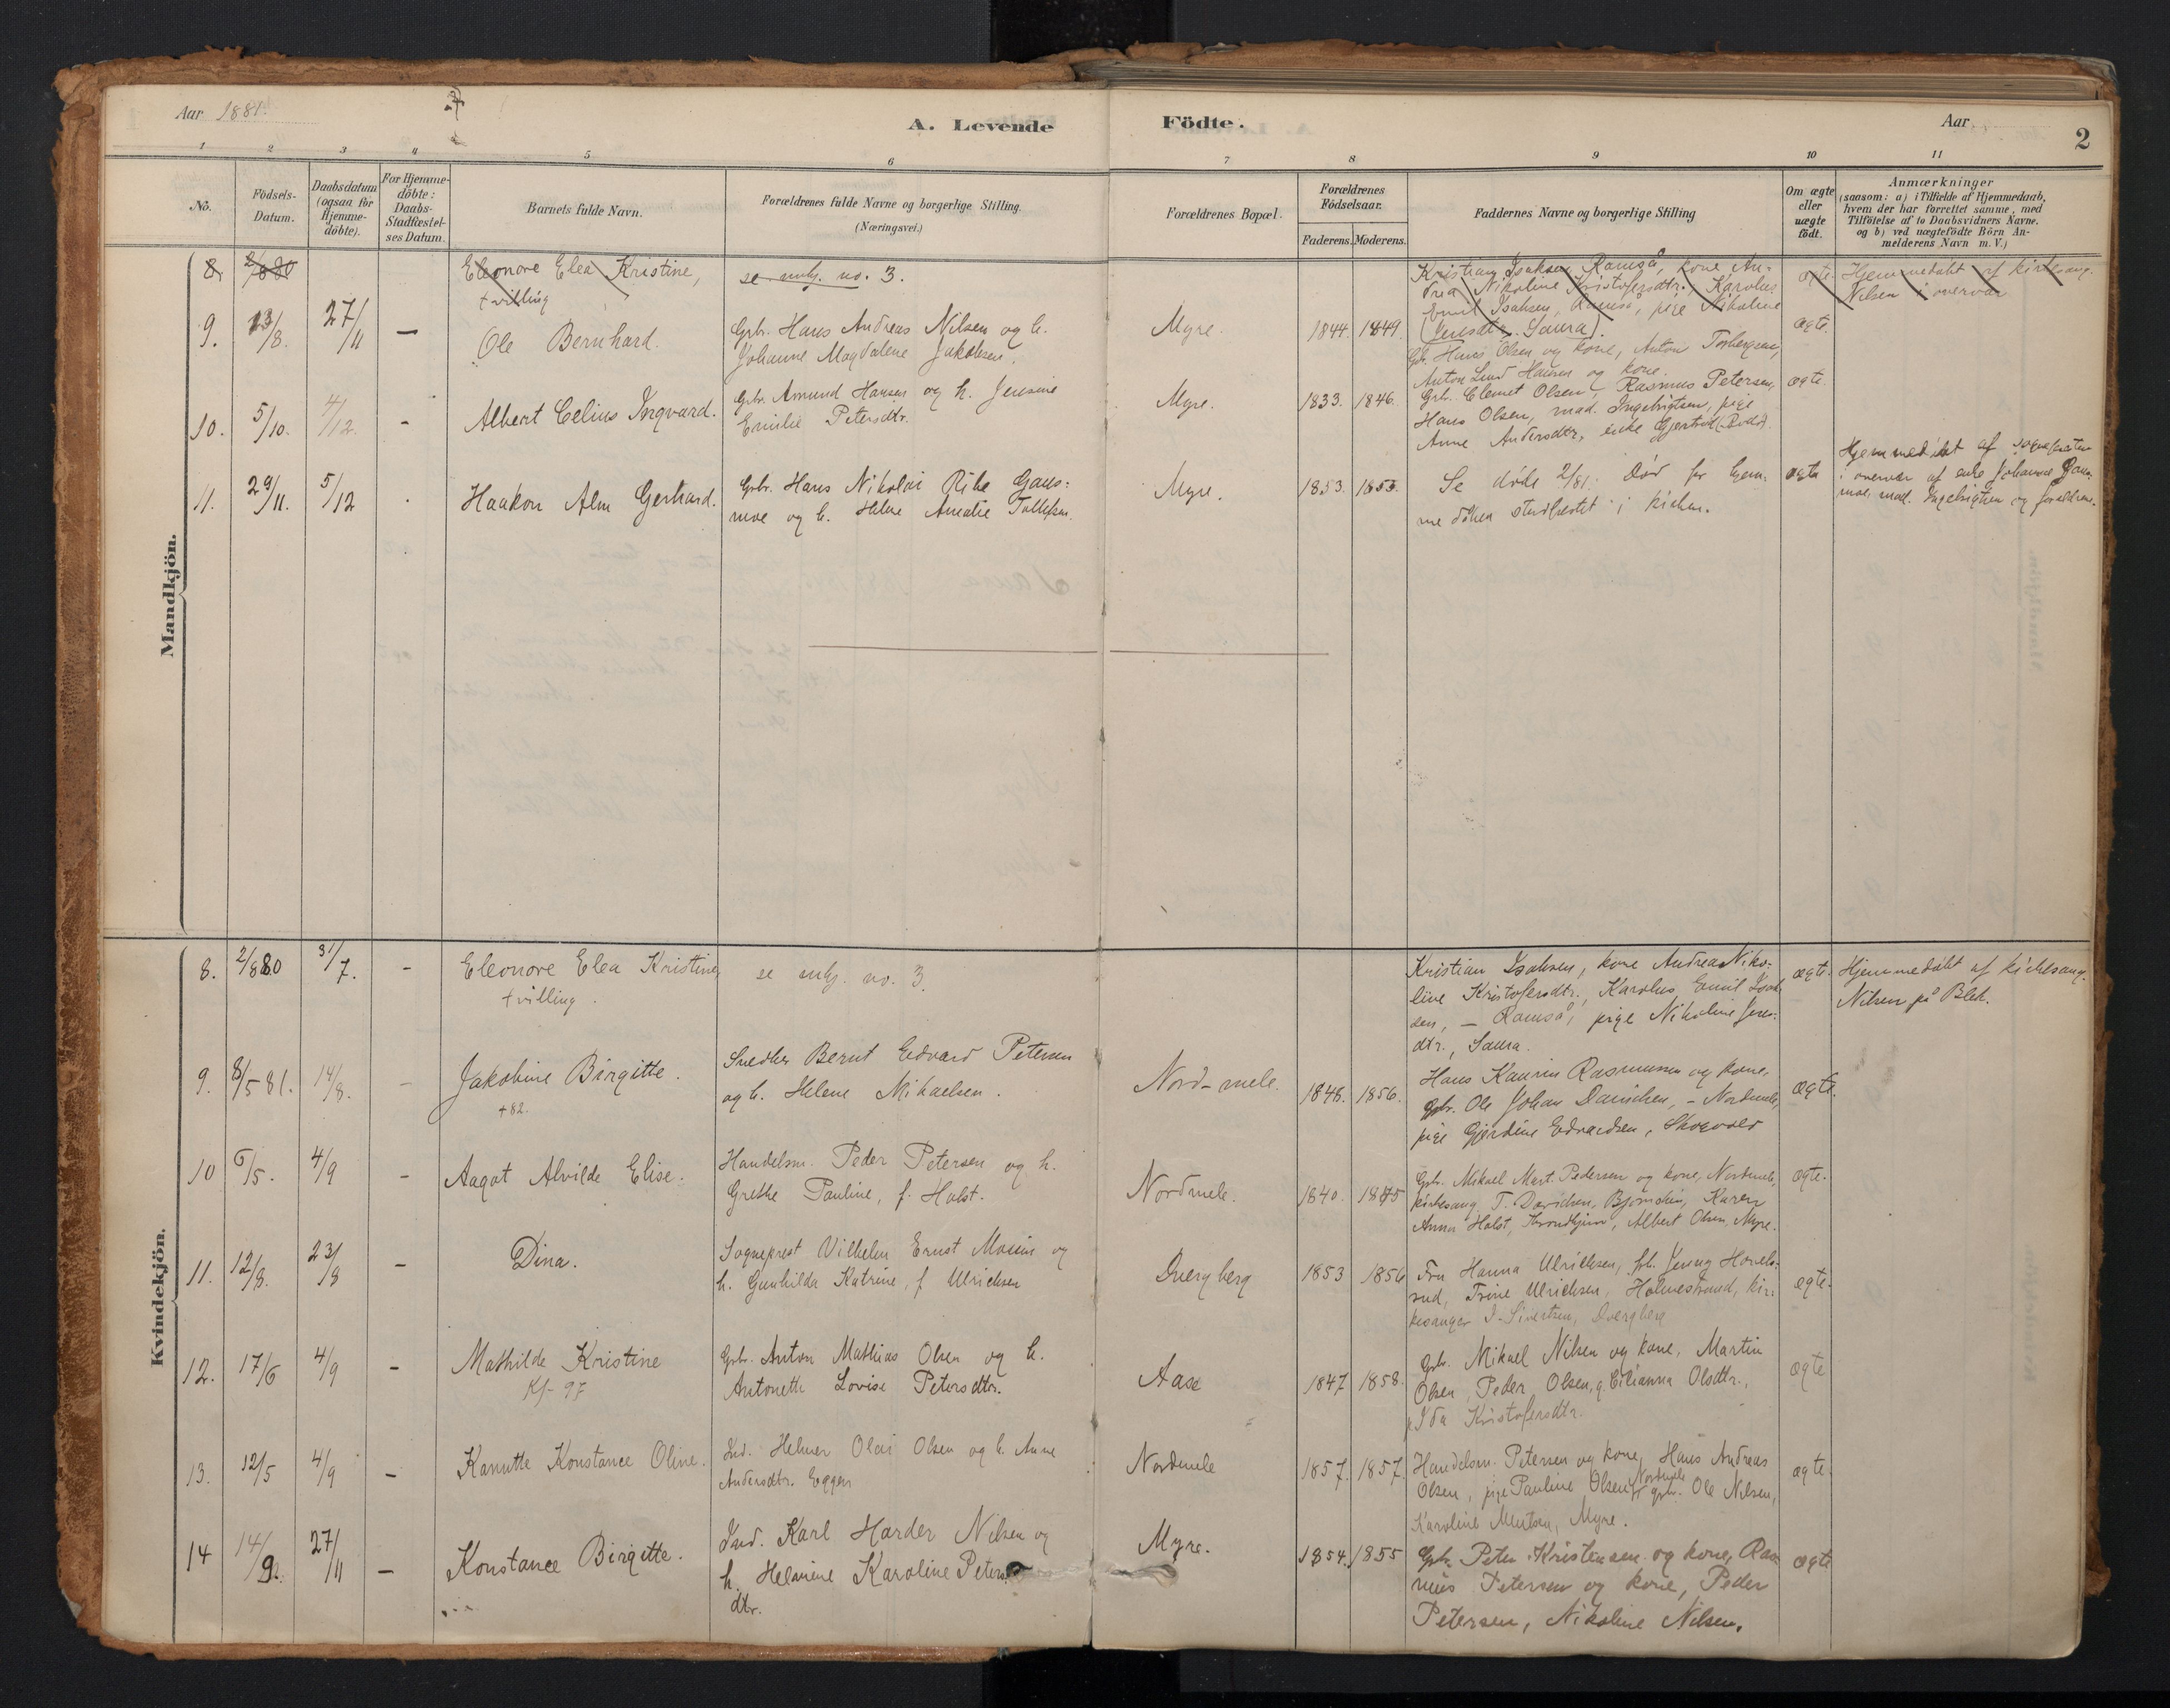 Aar 1881.
A. Levende
Födte.
Aar
2
1 2 3 4 5 6 7 8 9 10 11
No.
Födsels-
Datum.
Daabsdatum
(ogsaa for
Hjemme-
döbte).
For Hjemme-
döbte:
Daabs-
Stadfæstel-
ses Datum.
Barnets fulde Navn.
Forældrenes fulde Navne og borgerlige Stilling.
(Næringsvei.)
Forældrenes Bopæl.
Forældrenes
Födselsaar.
Faderens. Moderens.
Faddernes Navne og borgerlige Stilling
Om ægte
eller
uægte
födt.
Anmærkninger
(saasom: a) i Tilfælde af Hjemmedaab,
hvem der har forrettet samme, med
Tilföielse af to Daabsvidners Navne.
og b) ved uægtefödte Börn An-
melderens Navn m. V.)
Mandkjön.
8. 2/8 80
Eleonore Elea Kristine,
tvilling
se no. 3.
Kristian Isaksen, Ramså, kone An-
drea Nikoline Kristofersdtr., Karolus
Emil Isaksen, Ramså, pige Nikoline
Jensdtr. Saura).
ægte.
Hjemmedøbt af kirkesang.
Nilsen i overvær
9. 13/8. 27/11 –
Ole Bernhard.
Grb. Hans Andreas Nilsen og h.
Johanne Magdalene Jakobsen.
Myre.
1844. 1849.
Gb. Hans Olsen og kone, Anton Torbergsen,
Anton Lind Hansen og kone.
ægte.
10. 5/10. 4/12. -
Albert Celius Ingvard.
Grb. Amund Hansen og h. Jensine
Emilie Petersdtr.
Myre.
1833. 1846.
Grb. Clemet Olsen, Rasmus Petersen,
Hans Olsen, mad. Ingebrigtsen, pige
Anne Andersdtr, enke Gjertrud
ægte.
11. 29/11. 5/12 .
Haakon Alm Gerhard.
Grb. Hans Nikolai Rihe Gaus-
moe og h. Helene Amalie Tollefsen.
Myre.
1853. 1853.
Se døde 2/81. Død før hjem-
me dåben stadfæstet i kirken.
ægte
Hjemmedøbt af
i overvær af enke Johanne
mad. Ingebrigtsen og forældrene.
Kvindekjön.
8. 2/8 80 31/7. -
Eleonore Elea Kristine,
tvilling.
se no. 3.
Kristian Isaksen, kone Andrea Niko-
line Kristofersdtr., Karolus Emil Isak-
sen, – Ramså, pige Nikoline Jens-
dtr., Saura.
ægte.
Hjemmedøbt af kirkesang.
Nilsen på Blek.
9. 8/5 81. 14/8. -
Jakobine Birgitte.
+82.
Snedker Bernt Edvard Petersen
og h. Helene Mikaelsen.
Nord-mele.
1848. 1856.
Hans Kaurin Rasmussen og kone,
Grb. Ole Johan Danielsen, – Nordmele,
pige Gjerdine Edvardsen, Skogvold
ægte.
10 6/5. 4/9 -
Aagot Alvilde Elise.
Handelsm. Peder Petersen og h.
Grethe Pauline, f. Holst.
Nordmele.
1840. 1845
Grb. Mikael Mart. Pedersen og kone, Nordmele,
kirkesang. T. Davidsen, Bjørnskin, Karen
Anna Holst, Trondhjem, Albert Olsen, Myre.
ægte.
11. 12/8. 23/8 -
Dina.
Sogneprest Vilhelm Ernst Massin og
h. Gunhilda Katrine, f Ulrichsen
Dvergberg
1853 1856
Fru Hanna Ulrichsen, frk. Jenny Hovels-
rud, Trine Ulrichsen, Holmestrand, kir-
kesanger J. Sivertsen, Dvergberg
ægte.
12. 17/6 4/9 -
Mathilde Kristine
Kf- 97
Grb. Anton Mathias Olsen og h.
Antonette Lovise Petersdtr.
Aase
1847 1858.
Grb. Mikael Nilsen og kone, Martin
Olsen, Peder Olsen, g. Elianna Olsdtr.,
p Ida Kristofersdtr.
ægte
13. 12/5 4/9 -
Kanutte Konstance Oline.
Ind. Helmer Olai Olsen og h. Anne
Andersdtr. Eggen
Nordmele
1857. 1857.
Handelsm. Petersen og kone, Hans Andreas
Olsen, pige Pauline Olsen, Nordmele grb. Ole Nilsen,
Karoline Mentsen, Myre.
ægte.
14 14/9. 27/11 –
Konstance Birgitte.
Ind. Karl Harder Nilsen og
h. Helmine Karoline Peters-
dtr.
Myre.
1854. 1855
Grb. Peter Kristensen og kone, Ras-
mus Petersen og kone, Peder
Petersen, Nikoline Nilsen.
ægte